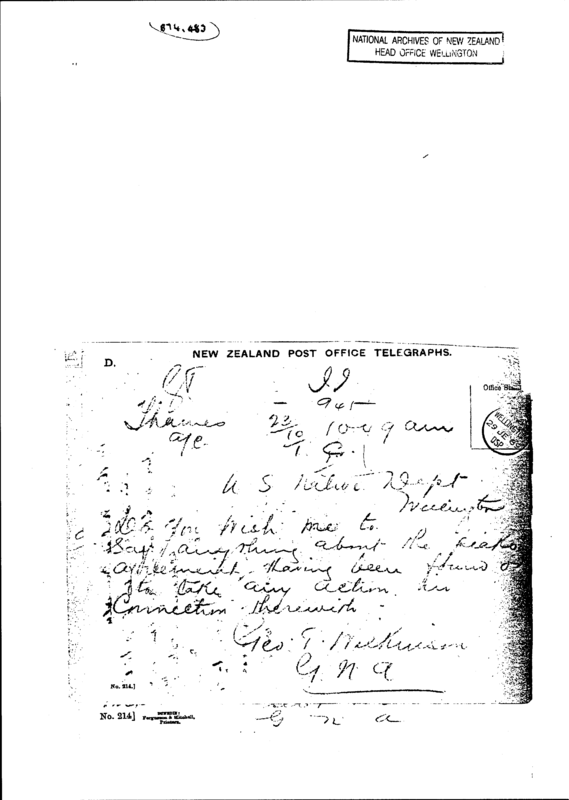 874.483
NATIONAL ARCHIVES OF NEW ZEALAND
HEAD OFFICE WELLINGTON
D.
NEW ZEALAND POST OFFICE TELEGRAPHS.
Office
Thames
23/10/1 1009 am
U S Native Dept
Wellington
Do you wish me to
Say anything about the Piako
agreement having been found or
to take any action in
Connection therewith
Geo. T. Wilkinson
G N A
No. 214.]
No. 214]
Fergusson & Mitchell,
Printers.
G n a